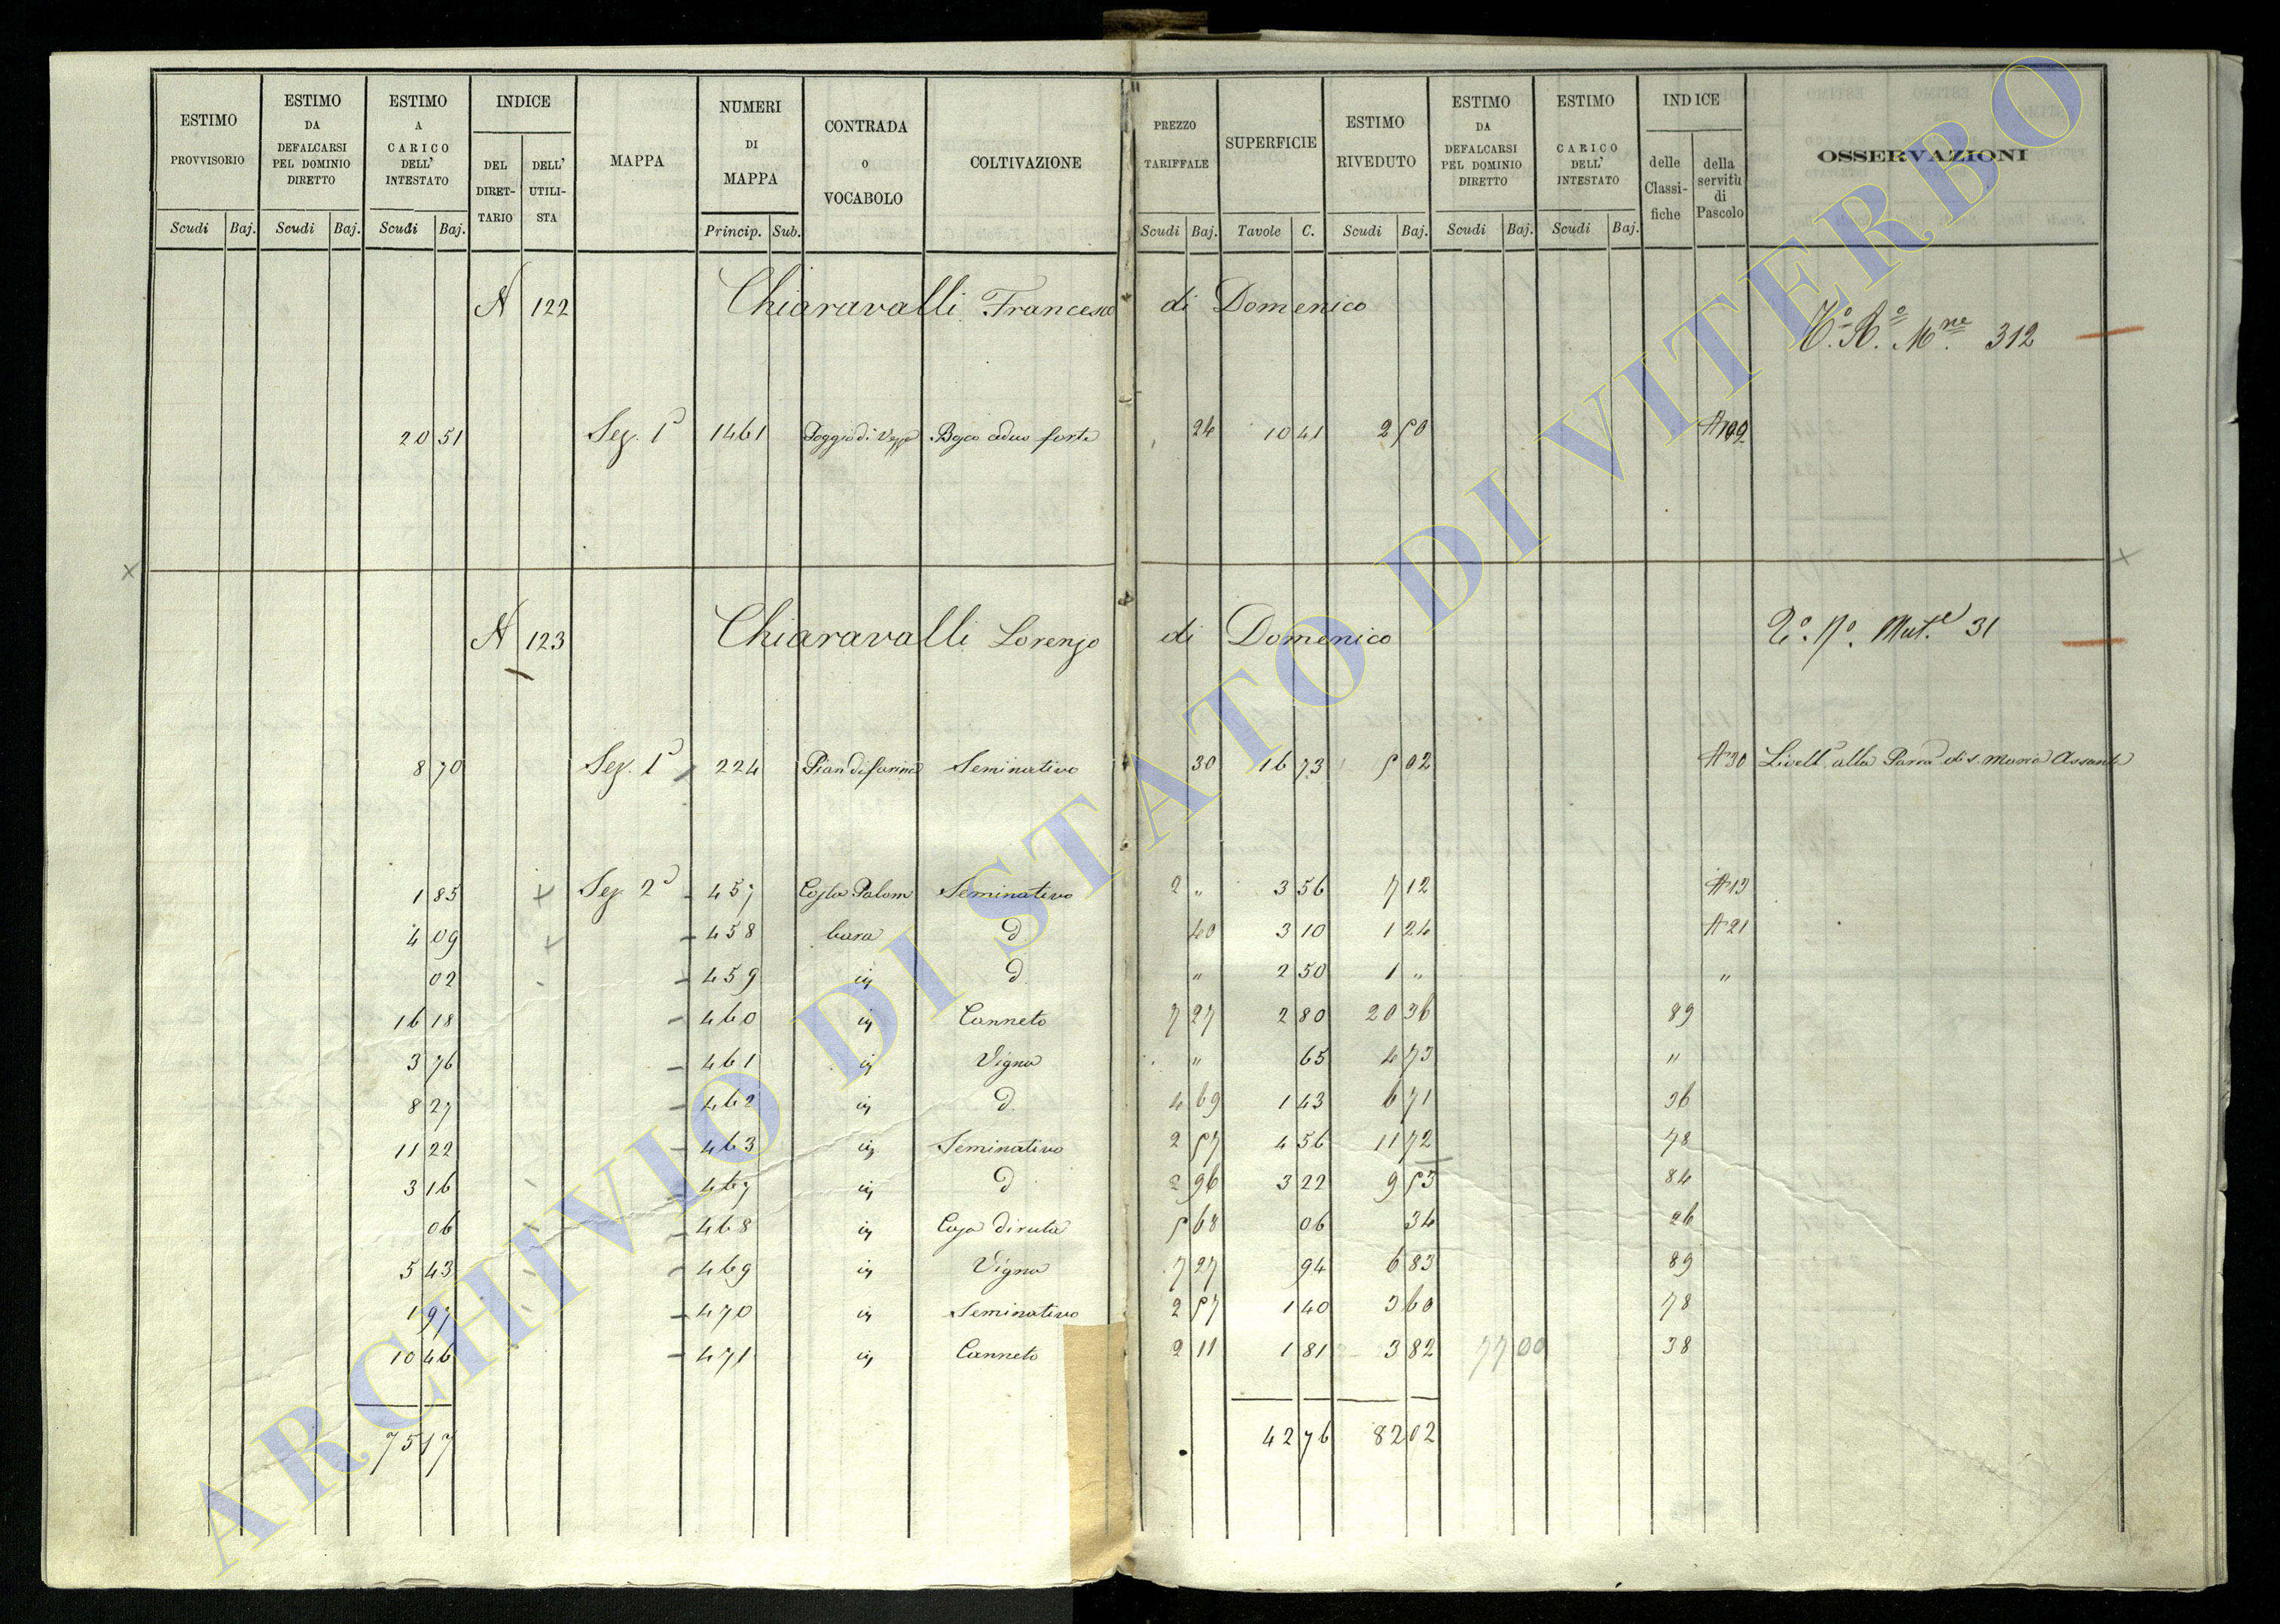 ESTIMO PROVVISORIO | ESTIMO DA DEFALCARSI PEL DOMINIO DIRETTO | ESTIMO A CARICO DELL' INTESTATO | INDICE | MAPPA | NUMERI DI MAPPA | CONTRADA O VOCABOLO | COLTIVAZIONE | PREZZO TARIFFALE | SUPERFICIE | ESTIMO RIVEDUTO | ESTIMO DA DEFALCARSI PEL DOMINIO DIRETTO | ESTIMO A CARICO DELL' INTESTATO | INDICE | OSSERVAZIONI
DEL DIRET-TARIO | DELL' UTILI-STA | delle Classi-fiche | della servitù di Pascolo
Scudi | Baj. | Scudi | Baj. | Scudi | Baj. | Princip. | Sub. | Scudi | Baj. | Tavole | C. | Scudi | Baj. | Scudi | Baj. | Scudi | Baj.
A 122 Chiaravalli Francesco di Domenico
312
20 51 Sez. 1ª 1461 Poggio di Bosco ceduo forte 24 10 41 2 50
A 123 Chiaravalli Lorenzo di Domenico Mut.e 31
8 70 Sez. 1ª 224 Seminativo 30 16 73 5 02 A 30 Livell. alla di S. Maria Assunta
1 85 Sez. 2ª 457 Costa Palom Seminativo 2 " 3 56 7 12 A 13
4 09 458 bara d. 40 3 10 1 24 A 21
02 459 d. " 2 50 1 " "
16 18 460 Canneto 7 27 2 80 20 36 89
3 76 461 Vigna " 65 4 73 "
8 27 462 d. 4 69 1 43 6 71 36
11 22 463 Seminativo 2 57 4 56 11 72 78
3 16 467 d. 2 96 3 22 9 53 84
06 468 Casa diruta 5 68 06 34 26
5 43 469 Vigna 7 27 94 6 83 89
1 97 470 Seminativo 2 57 1 40 3 60 78
10 46 471 Canneto 2 11 1 81 3 82 77 00 38
75 17 42 76 82 02
ARCHIVIO DI STATO DI VITERBO